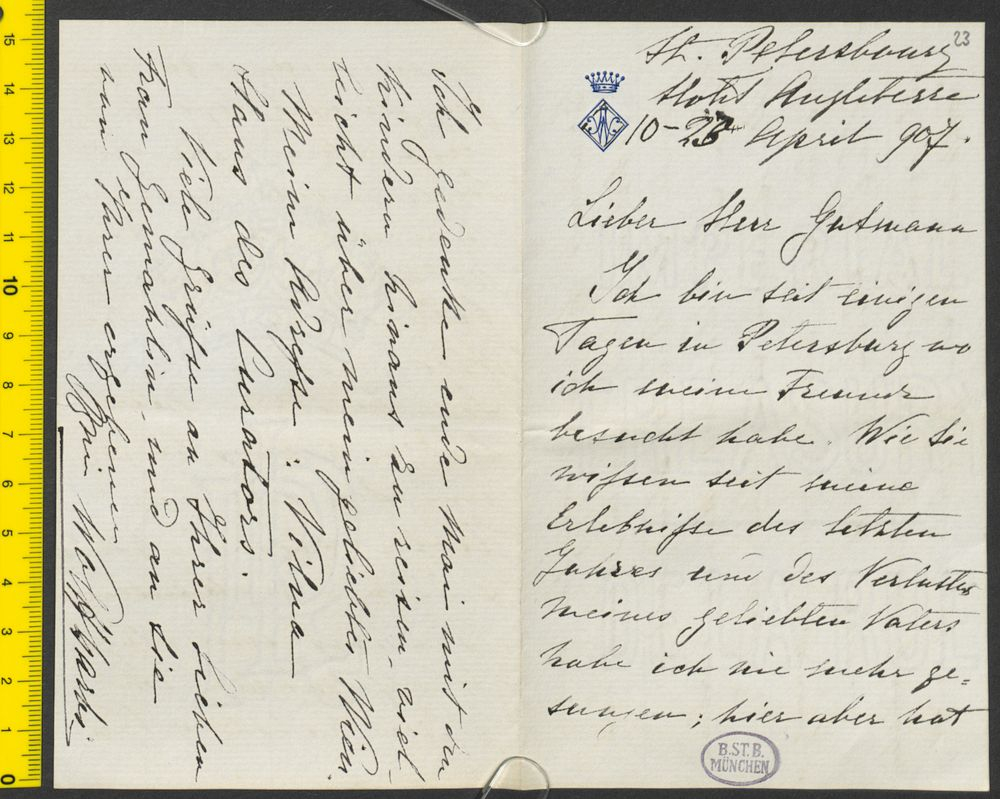 23
St. Petersbourg
Hotel Angleterre
10-23 April 907.
Lieber Herr Gutmann
Ich bin seit einigen
Tagen in Petersburg wo
ich meine Freunde
besucht habe. Wie Sie
wissen seit meine
Erlebnisse des letzten
Jahres und des Verlustes
meines geliebten Vaters
habe ich nie mehr ge=
sungen; hier aber hat
B.ST.B.
MÜNCHEN
Ich gedenke ende Mai mit den
Kindern hinaus zu reisen, viel-
leicht über mein geliebtes Wien.
Meine Adresse: Vilna
Haus des Curators.
Viele Grüsse an Ihrer lieben
Frau Gemahlin und an Sie
von Ihrer ergebenen
15
14
13
12
11
10
9
8
7
6
5
4
3
2
1
0